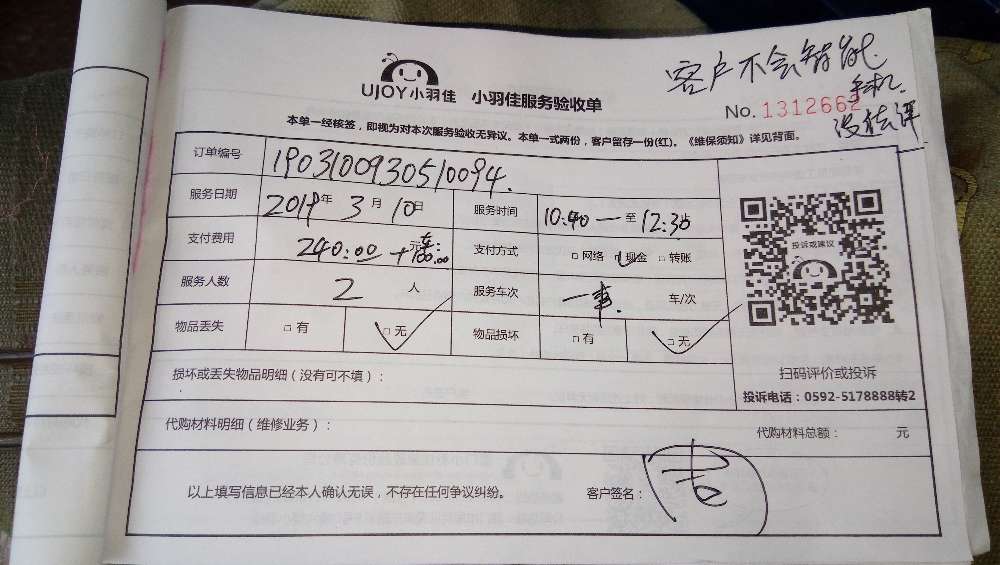 客户不会智能
手机.
没法评
UJOY小羽佳 小羽佳服务验收单
No. 1312662
本单一经核签，即视为对本次服务验收无异议。本单一式两份，客户留存一份(红)。《维保须知》详见背面。
订单编号 1903100930510094.
服务日期 2019年 3月 10日 服务时间 10:40 — 至 12:30
支付费用 240:00 +元车:100.00 支付方式 □网络 □现金 □转账
服务人数 2 人 服务车次 一车. 车/次
物品丢失 □有 □无 物品损坏 □有 □无
投诉或建议
扫码评价或投诉
投诉电话：0592-5178888转2
损坏或丢失物品明细（没有可不填）：
代购材料明细（维修业务）： 代购材料总额： 元
以上填写信息已经本人确认无误，不存在任何争议纠纷。 客户签名：